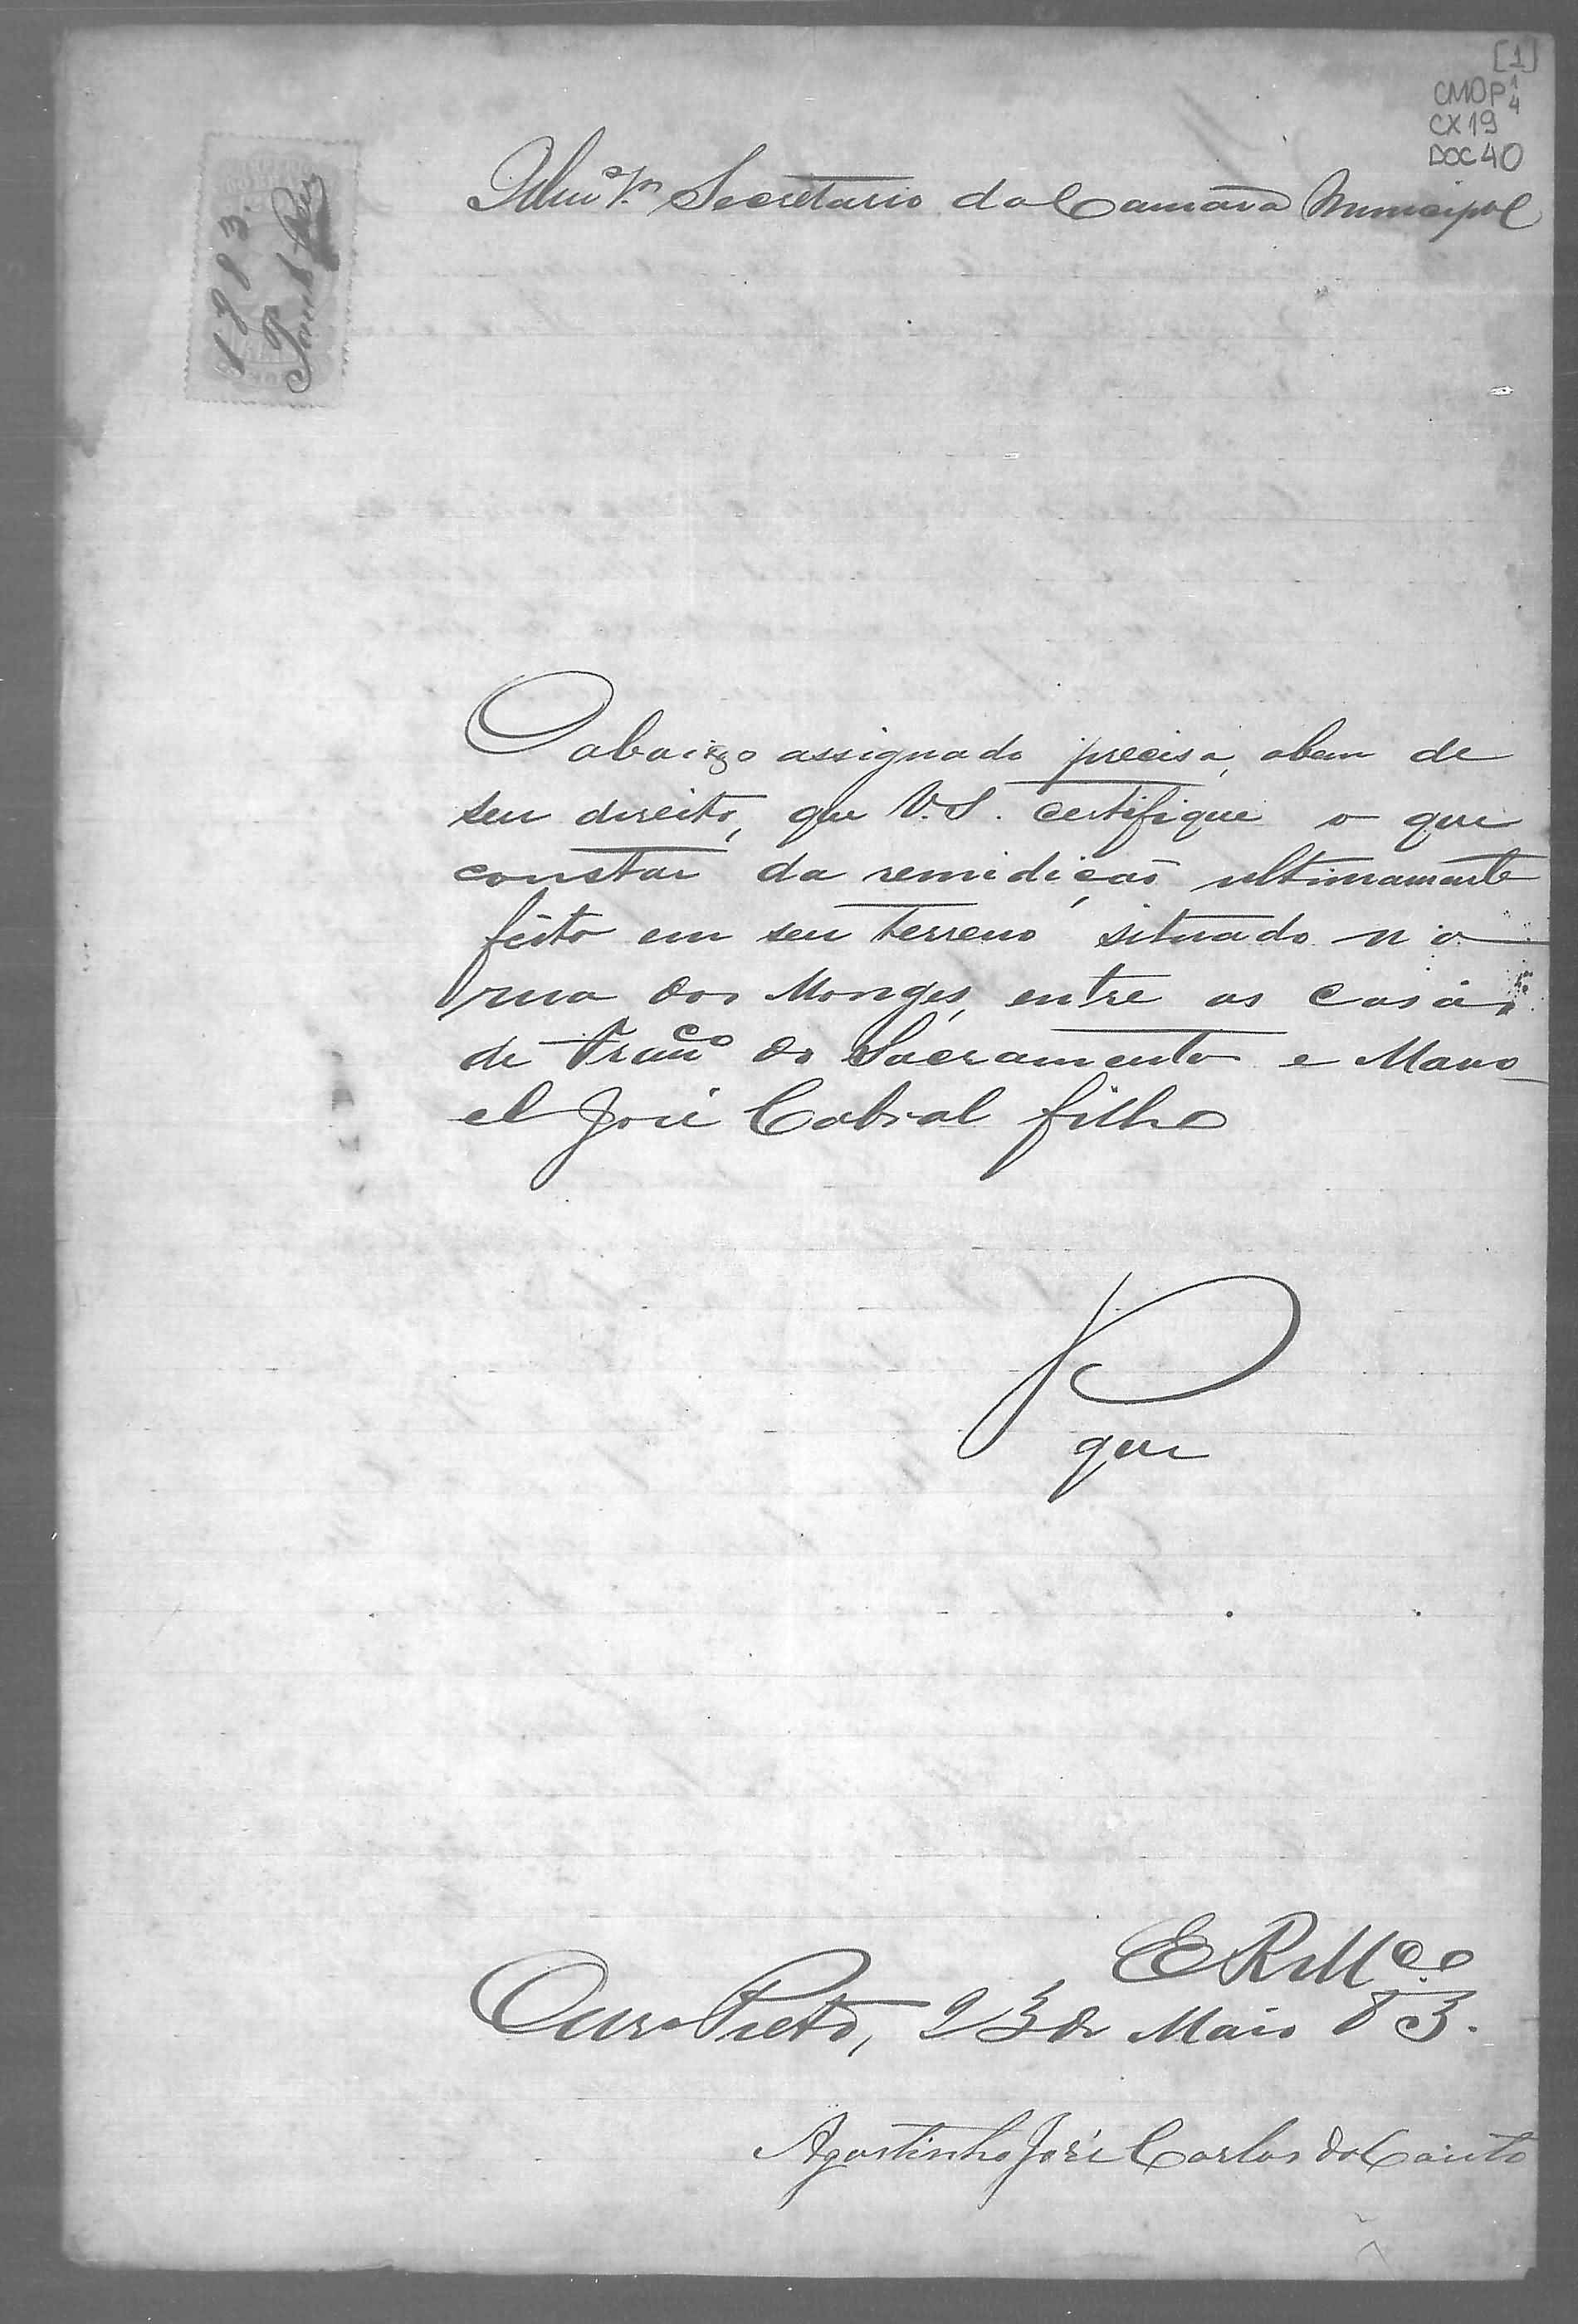 [1]
CMOP 1/4
CX19
DOC40
1883.
Illmº Sr. Secretario da Camara Municipal
O abaixo assignado precisa, abem de
seu direito, que V.S. certifique o que
constar da remidição ultimamente
feito em seu terreno situado na
rua dos Monges, entre as casas
de Francº do Sacramento e Mano-
el José Cabral filho
P
que
E R Mce
Ouro Preto, 23 de Maio 83.
Agostinho José Carlos do Couto